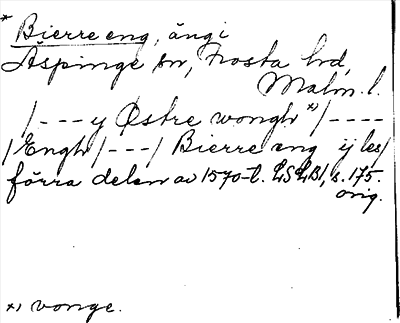 * Bierre eng, ängi
Äspinge sn, Frosta hd,
Malm. l.
/---y Østre wongh *)/----
/Engh/---/ Bierre eng ij les/
förra delen av 1570-t. LSLBI, s. 175.
orig.
*) vonge.